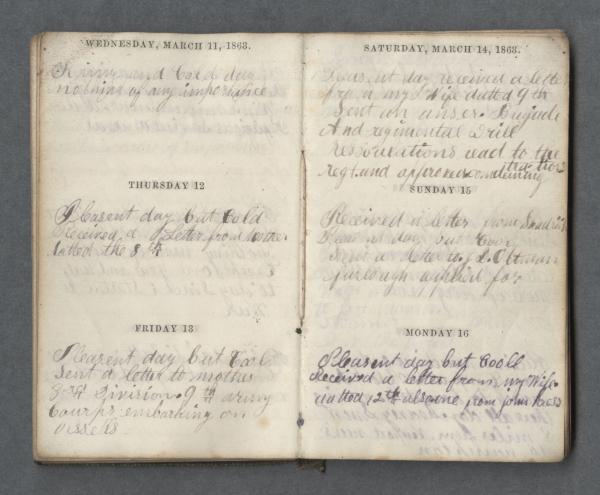 WEDNESDAY, MARCH 11, 1863.
and Cold day
nothing of any importance
THURSDAY 12
Pleasent day but Cold
Received a Letter from
datted the 8th
FRIDAY 13
Pleasent day but Cool
sent a letter to mother
Division 9th army
Courps embarking on
vessels
SATURDAY, MARCH 14, 1863.
Pleasent day received a letter
from my Wife datted 9th
Sent an anser. Brigade
And regimental Drill
Resoulations read to the
regt. and approved
SUNDAY 15
Received a letter from
Pleasent day but Cool
Sent a letter to
furlough applied for
MONDAY 16
Pleasent day but Cooll
Received a letter from my Wife
datted 12th also one from john